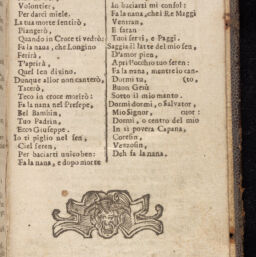 Volontier,
Per darci miele.
La tua morte sentirò,
Piangerò,
Quando in Croce ti vedrò:
Fa la nana, che Longino
Ferirà,
T'aprirà,
Quel sen divino.
Dunque allor non canterò,
Tacerò,
Teco in croce morirò:
Fa la nana nel Presepe,
Bel Bambin,
Tuo Padrin,
Ecco Giuseppe.
Io ti piglio nel sen,
Ciel seren,
Per baciarti unicoben:
Fa la nana, e dopo morte
In baciarti mi consol:
Fa la nana, che i Re Maggi
Verran,
E saran
Tuoi servi, e Paggi.
Saggia il latte del mio sen,
D'amor pien,
Apri l'occhio tuo seren:
Fa la nana, mentre io can-
Dormi tu, (to
Buon Gesù
Sotto il mio manto.
Dormi dormi, o Salvator,
Mio Signor, cuor:
Dormi, o centro del mio
In sì povera Capana,
Cortesin,
Vezzosin,
Deh fa la nana.